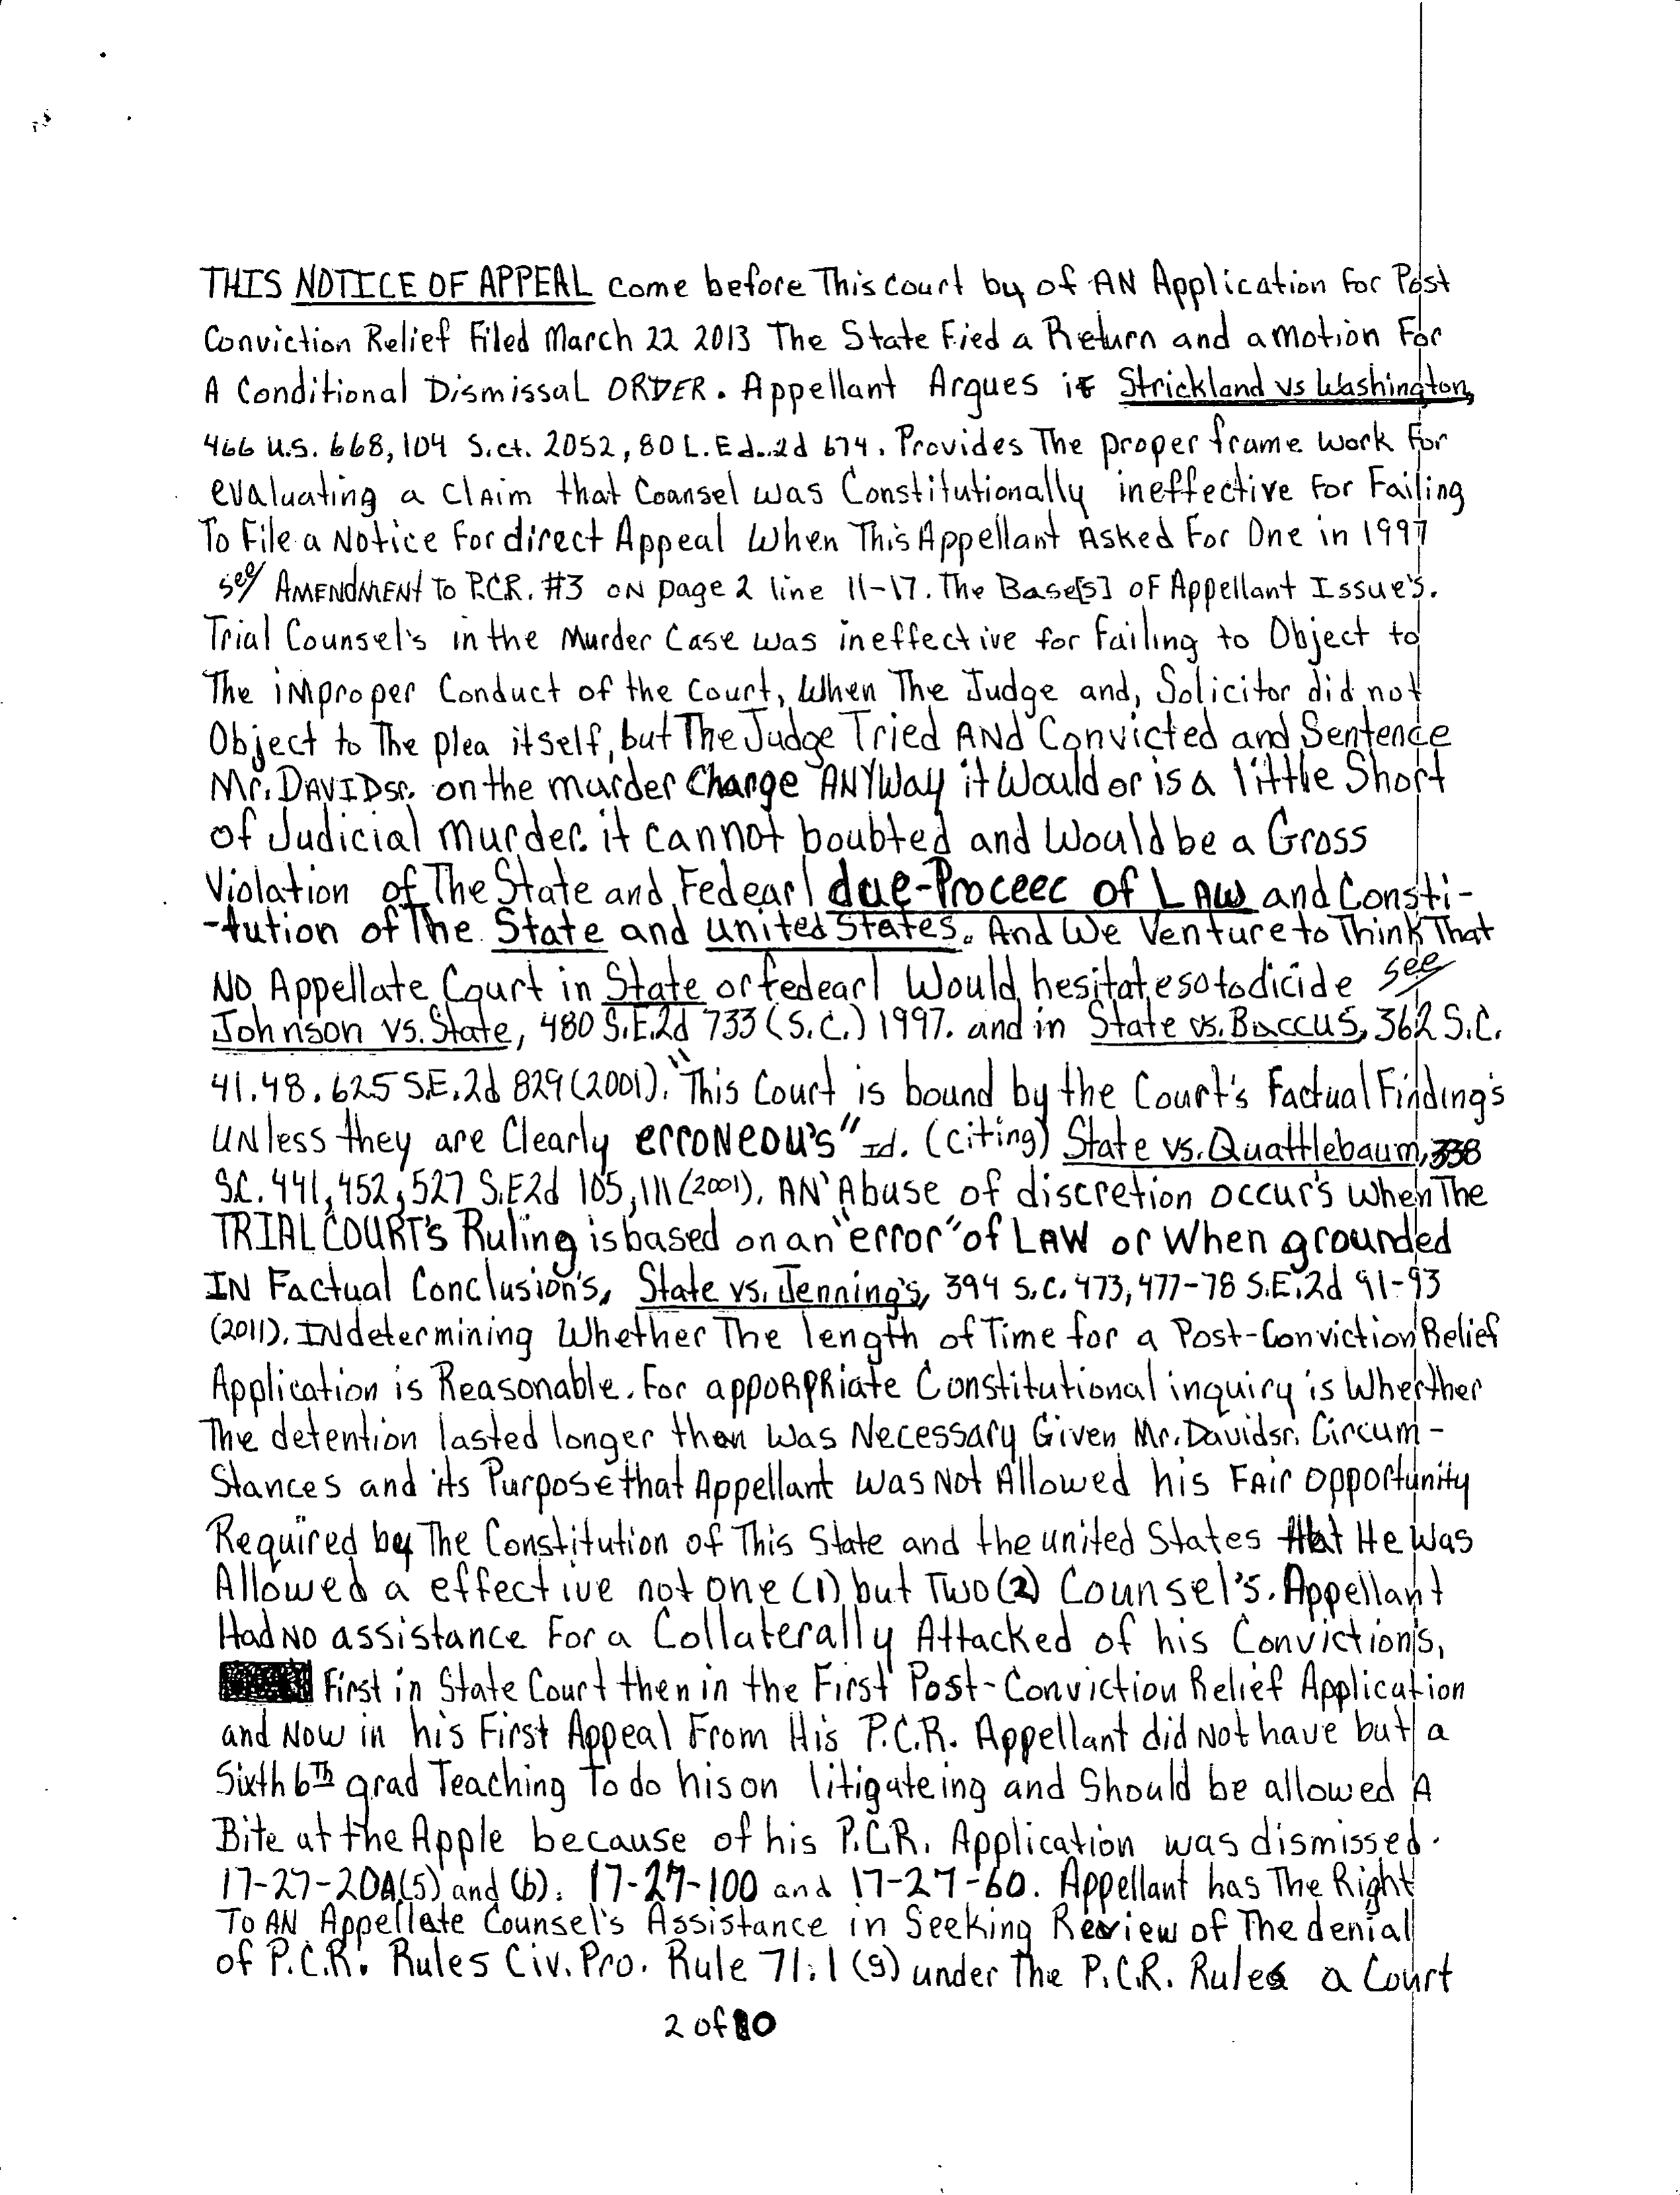 THIS NOTICE OF APPEAL come before This Court by of AN Application For Post
Conviction Relief Filed March 22 2013 The State Fied a Return and a motion For
A Conditional Dismissal ORDER. Appellant Argues if Strickland vs Washington,
466 U.S. 668, 104 S.ct. 2052, 80 L.Ed..2d 674. Provides The proper frame work For
evaluating a claim that Counsel was Constitutionally ineffective For Failing
To File a Notice For direct Appeal When This Appellant Asked For One in 1997
see/ AMENDMENT To P.C.R. #3 ON page 2 line 11-17. The Base[s] OF Appellant Issue's.
Trial Counsel's in the Murder Case was ineffective for Failing to Object to
The improper Conduct of the Court, When The Judge and, Solicitor did not
Object to The plea itself, but The Judge Tried AND Convicted and Sentence
Mr. DAVID sr. on the murder Charge ANYWay it Would or is a little Short
of Judicial murder. it cannot boubted and Would be a Gross
Violation of The State and Fedearl due-Proceec of LAW and Consti-
-tution of The State and united States. And We Venture to Think That
NO Appellate Court in State or fedearl Would hesitate so to dicide see
Johnson vs. State, 480 S.E.2d 733 (S.C.) 1997. and in State vs. Baccus, 362 S.C.
41.48. 625 S.E.2d 829 (2001). "This Court is bound by the Court's Factual Finding's
UNless they are Clearly erroneou's" Id. (citing) State vs. Quattlebaum, 338
S.C. 441, 452, 527 S.E2d 105, 111 (2001). AN' Abuse of discretion occur's when The
TRIAL COURT's Ruling is based on an "error" of LAW or When grounded
IN Factual Conclusion's, State vs. Jenning's, 394 S.C. 473, 477-78 S.E.2d 91-93
(2011). INdetermining Whether The length of Time for a Post-Conviction Relief
Application is Reasonable. For apporpriate Constitutional inquiry is Wherther
The detention lasted longer then Was Necessary Given Mr. David sr. Circum-
Stances and its Purpose that Appellant was Not Allowed his FAir opportunity
Required by The Constitution of This State and the united States that He Was
Allowed a effective not one (1) but Two (2) Counsel's. Appellant
Had NO assistance For a Collaterally Attacked of his Conviction's,
First in State Court then in the First Post-Conviction Relief Application
and Now in his First Appeal From His P.C.R. Appellant did Not have but a
Sixth 6Th grad Teaching To do his on litigateing and Should be allowed A
Bite at the Apple because of his P.C.R. Application was dismissed.
17-27-20A(5) and (b). 17-27-100 and 17-27-60. Appellant has The Right
To AN Appellate Counsel's Assistance in Seeking Review of The denial
of P.C.R. Rules Civ. Pro. Rule 71.1 (g) under The P.C.R. Rules a Court
2 of 10